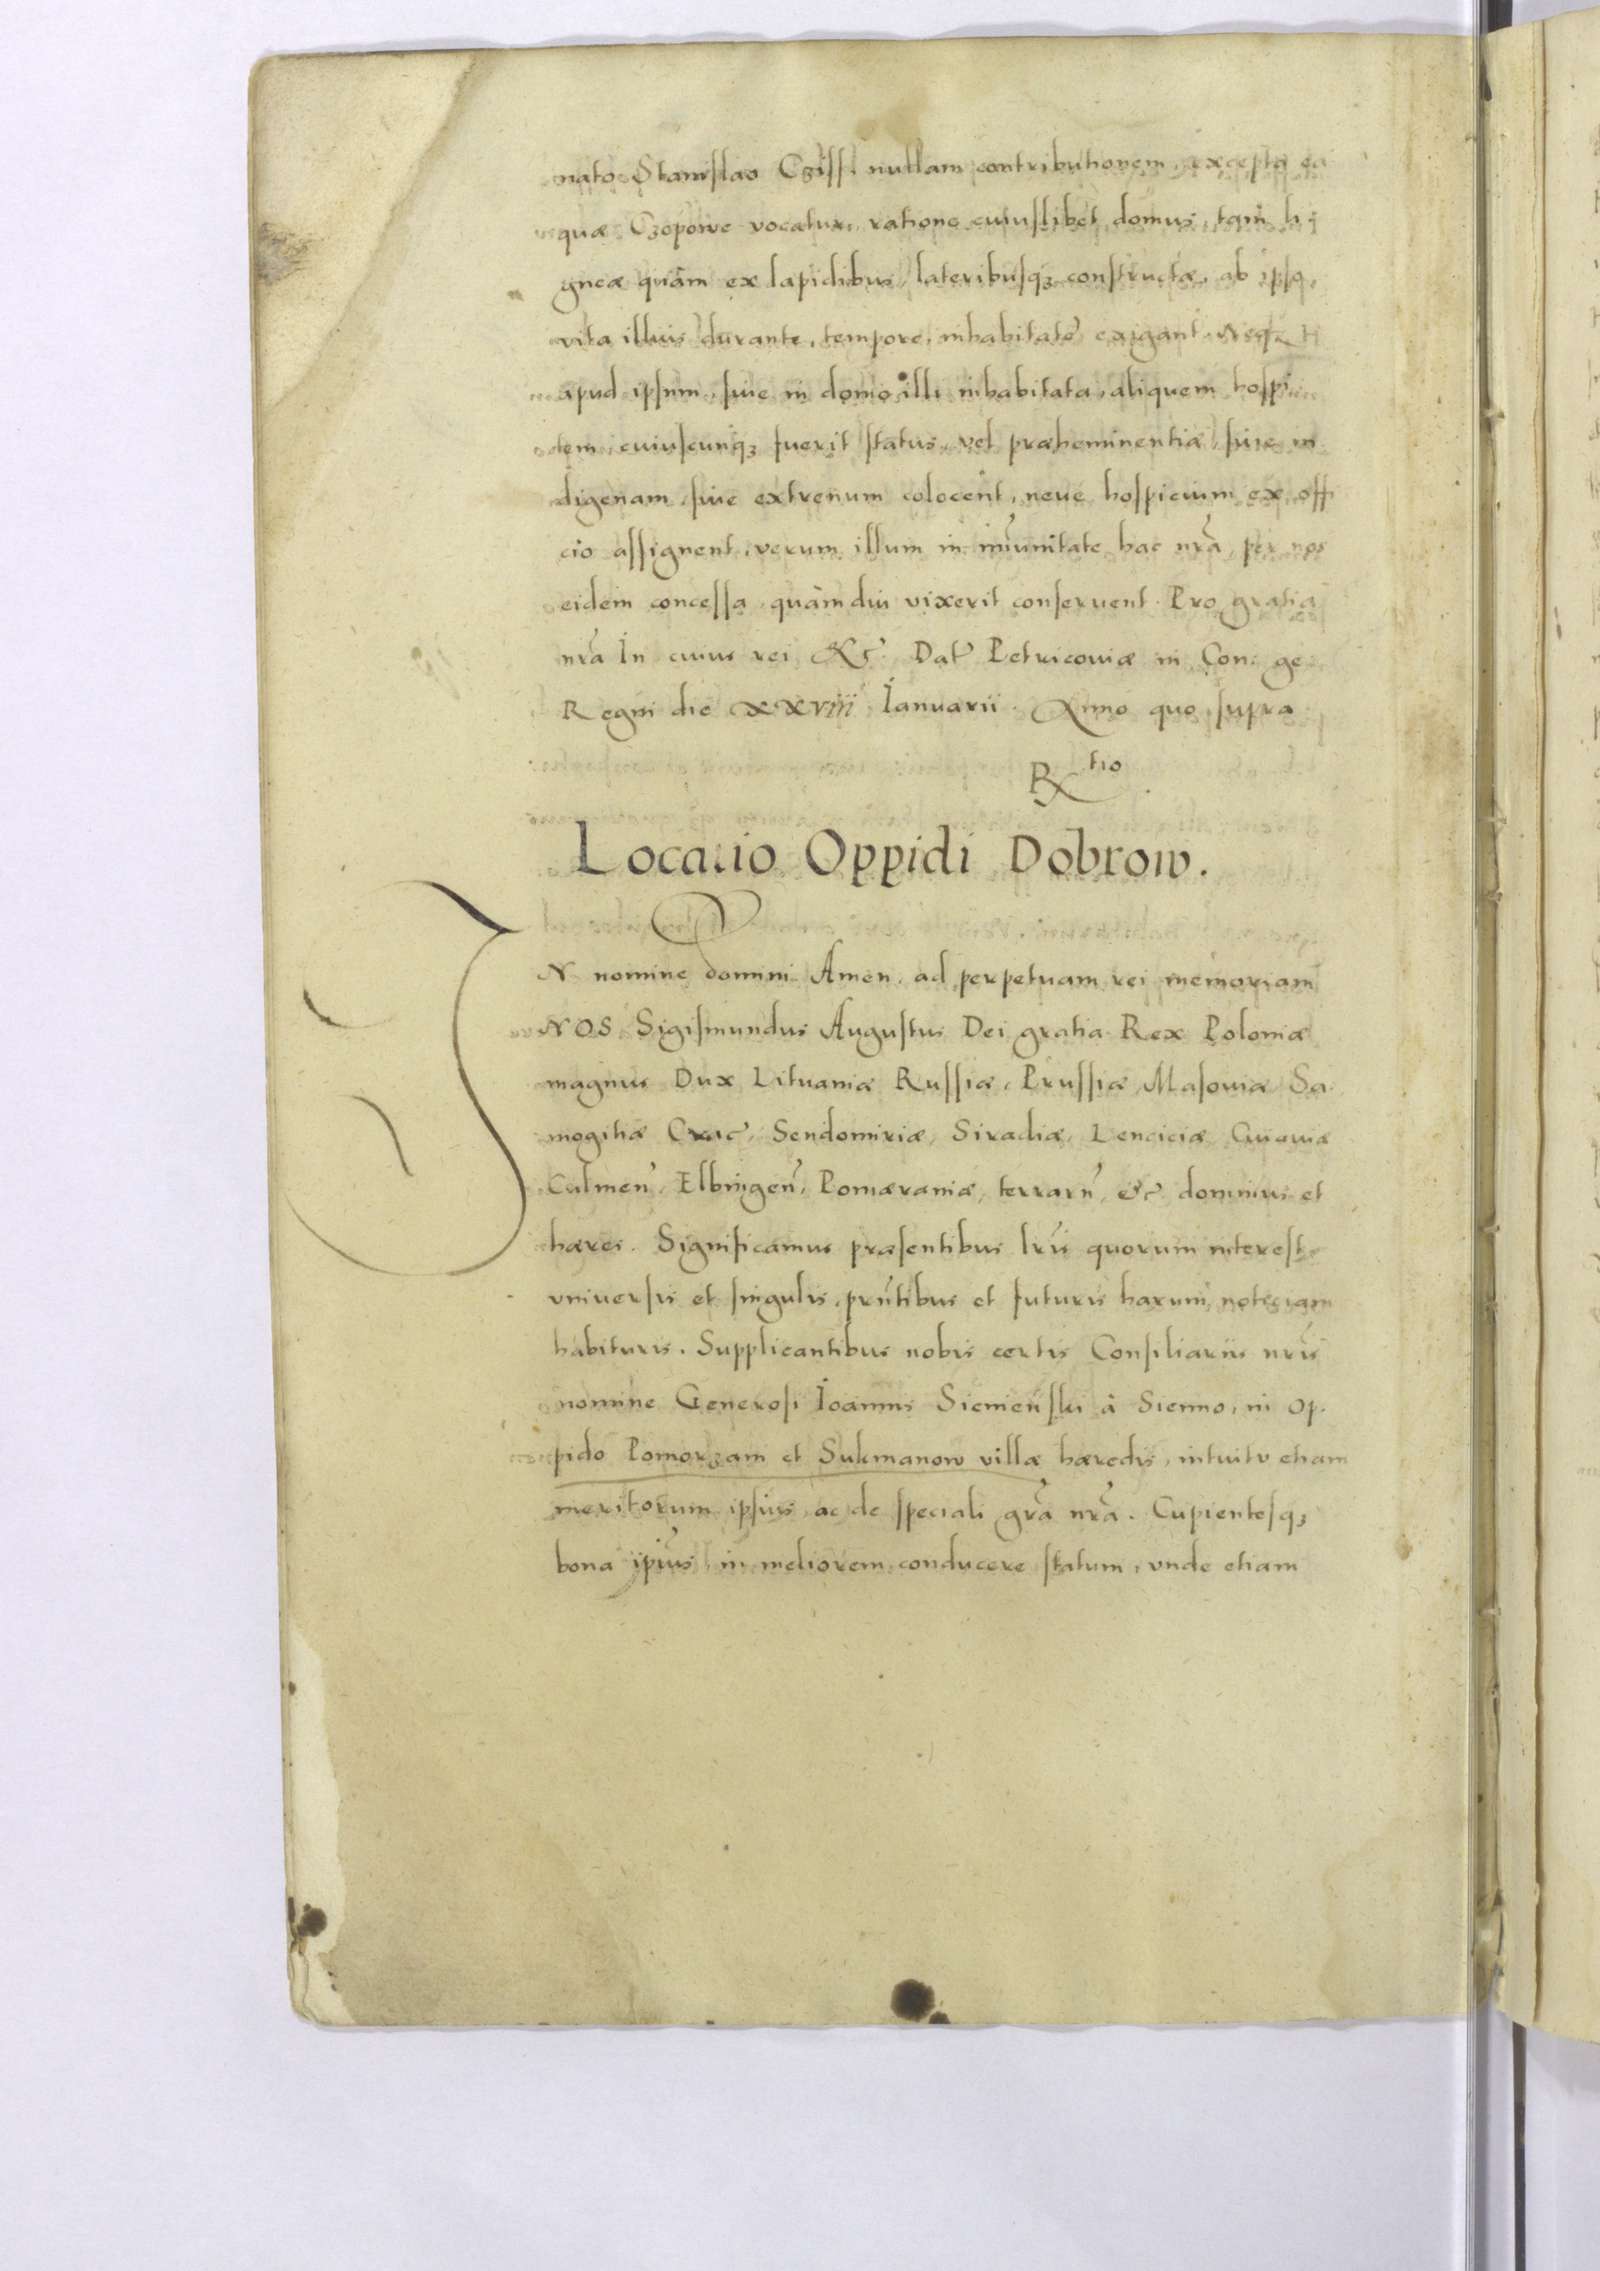 nato Stanislao Cziss nullam contributionem, excepta ea
quæ Czopowe vocatur, ratione cuiuslibet domus, tam li
gneæ quàm ex lapidibus, lateribusq3 constructæ, ab ipso,
vita illius durante, tempore, inhabitate exigant. Neq3
apud ipsum, siue in domo illi inhabitata, aliquem hospi
tem cuiuscunq3 fuerit status, vel præheminentiæ, siue in
digenam, siue extrenum colocent, neue hospicium ex offi
cio assignent, verum illum in imunitate hac nrã, per nos
eidem concessa, quàm diu vixerit conseruent. Pro gratia
nrã In cuius rei &c. Dat Petricouiæ in Con: ge
Regni die xxviii Ianuarii. Anno quo supra
Rtio.
Locatio Oppidi Dobrow.
IN nomine domini Amen, ad perpetuam rei memoriam
NOS Sigismundus Augustus Dei gratia Rex Poloniæ
magnus Dux Lituaniæ Russiæ, Prussiæ, Masouiæ Sa
mogitiæ Crac, Sendomiriæ, Siradiæ, Lenciciæ Cuiauiæ
Culmen, Elbingen, Pomæraniæ, terrarũ, &c dominus et
hæres. Significamus præsentibus lris quorum interest
vniuersis et singulis, prñtibus et futuris harum noteciam
habituris. Supplicantibus nobis certis Consiliariis nris
nomine Generosi Ioannis Sienieñski à Sienno, in Op.
pido Pomorzam et Sukmanow villæ hæredis, intuitu etiam
meritorum ipsius, ac de speciali grã nrã. Cupientesq3
bona ipius in meliorem conducere statum, vnde etiam